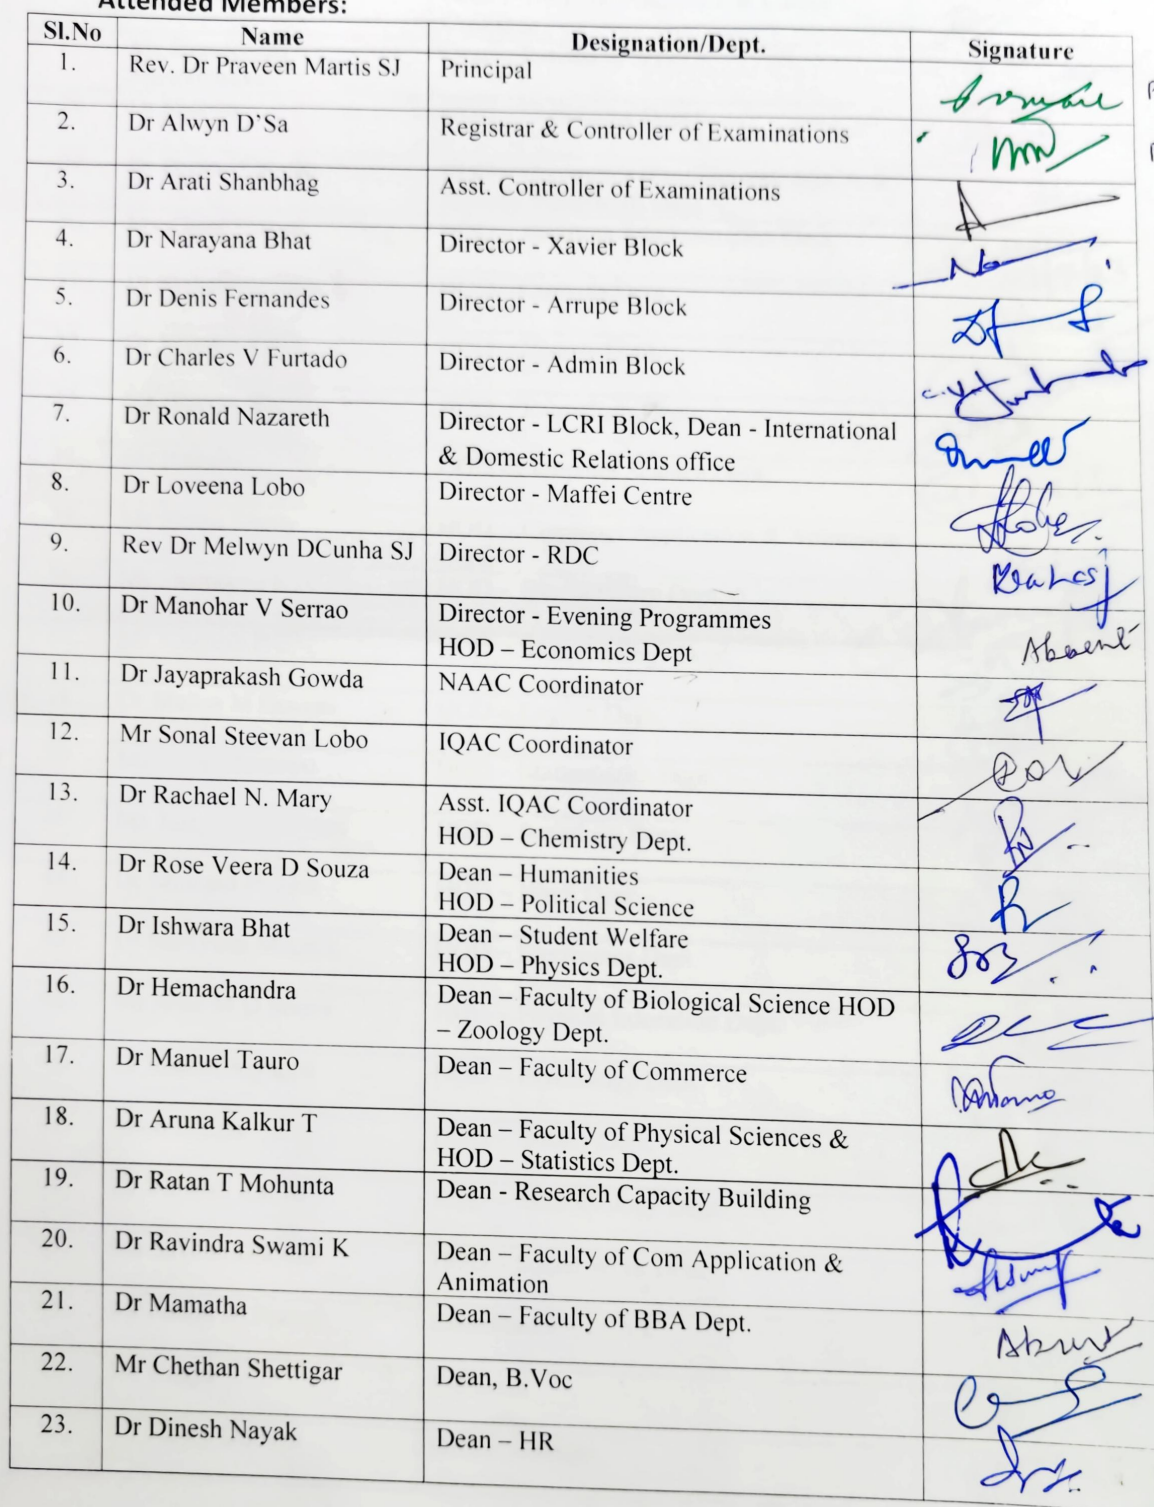 Attended Members:
Sl.No Name Designation/Dept. Signature
1. Rev. Dr Praveen Martis SJ Principal
2. Dr Alwyn D'Sa Registrar & Controller of Examinations
3. Dr Arati Shanbhag Asst. Controller of Examinations
4. Dr Narayana Bhat Director - Xavier Block
5. Dr Denis Fernandes Director - Arrupe Block
6. Dr Charles V Furtado Director - Admin Block
7. Dr Ronald Nazareth Director - LCRI Block, Dean - International
& Domestic Relations office
8. Dr Loveena Lobo Director - Maffei Centre
9. Rev Dr Melwyn DCunha SJ Director - RDC
10. Dr Manohar V Serrao Director - Evening Programmes
HOD – Economics Dept Absent
11. Dr Jayaprakash Gowda NAAC Coordinator
12. Mr Sonal Steevan Lobo IQAC Coordinator
13. Dr Rachael N. Mary Asst. IQAC Coordinator
HOD – Chemistry Dept.
14. Dr Rose Veera D Souza Dean – Humanities
HOD – Political Science
15. Dr Ishwara Bhat Dean – Student Welfare
HOD – Physics Dept.
16. Dr Hemachandra Dean – Faculty of Biological Science HOD
– Zoology Dept.
17. Dr Manuel Tauro Dean – Faculty of Commerce
18. Dr Aruna Kalkur T Dean – Faculty of Physical Sciences &
HOD – Statistics Dept.
19. Dr Ratan T Mohunta Dean - Research Capacity Building
20. Dr Ravindra Swami K Dean – Faculty of Com Application &
Animation
21. Dr Mamatha Dean – Faculty of BBA Dept. Absent
22. Mr Chethan Shettigar Dean, B.Voc
23. Dr Dinesh Nayak Dean – HR